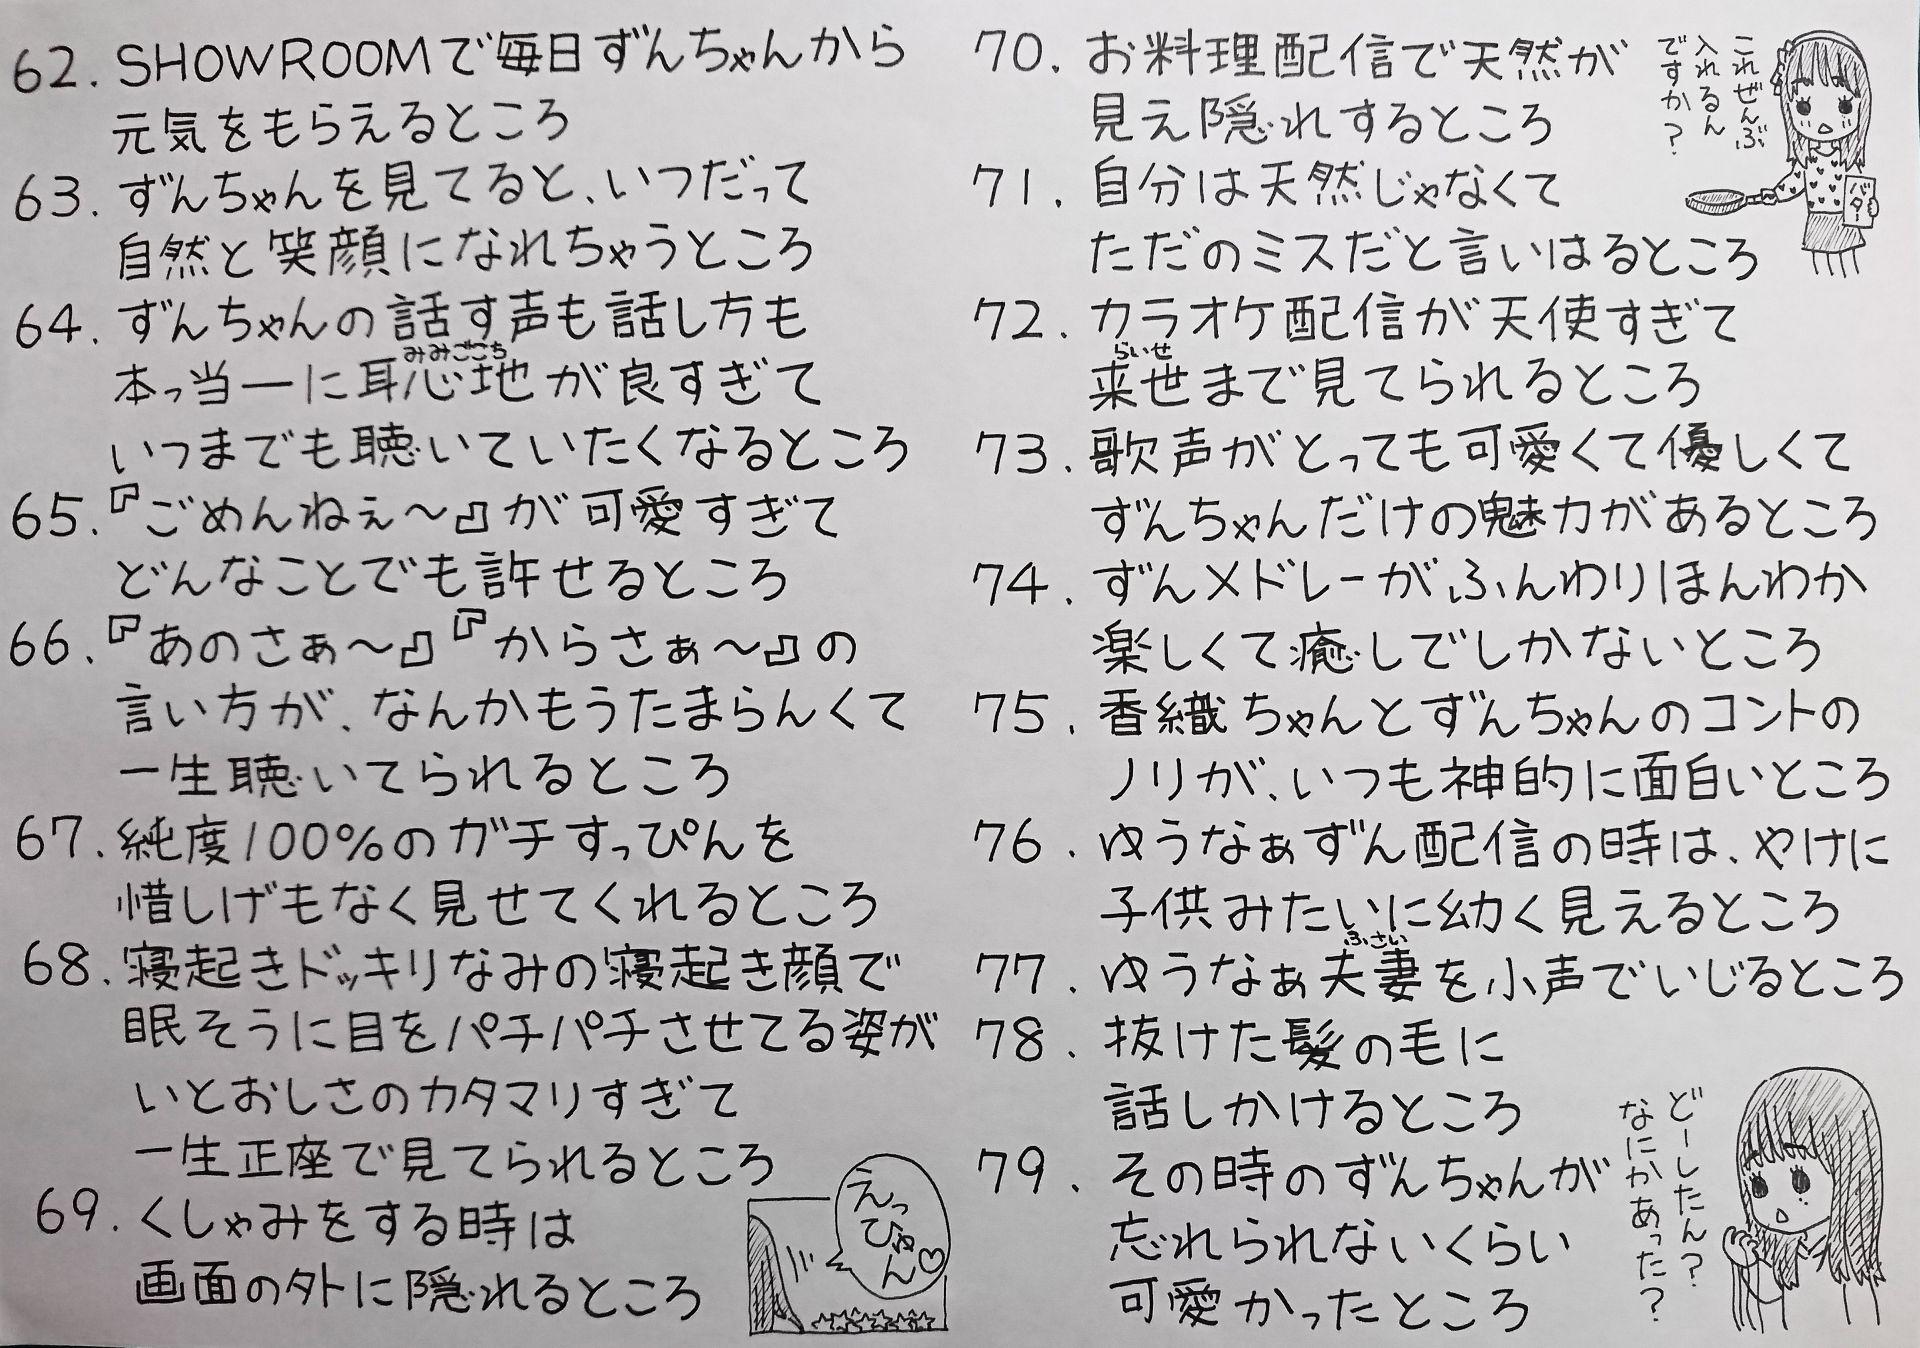 62. SHOWROOMで毎日ずんちゃんから
元気をもらえるところ
63. ずんちゃんを見てると、いつだって
自然と笑顔になれちゃうところ
64. ずんちゃんの話す声も話し方も
本っ当ーに耳心地が良すぎて
みみごこち
いつまでも聴いていたくなるところ
65. 『ごめんねぇ〜』が可愛すぎて
どんなことでも許せるところ
66. 『あのさぁ〜』『からさぁ〜』の
言い方が、なんかもうたまらんくて
一生聴いてられるところ
67. 純度100%のガチすっぴんを
惜しげもなく見せてくれるところ
68. 寝起きドッキリなみの寝起き顔で
眠そうに目をパチパチさせてる姿が
いとおしさのカタマリすぎて
一生正座で見てられるところ
69. くしゃみをする時は
画面の外に隠れるところ
えっ
ひゅ
ん♡
70. お料理配信で天然が
見え隠れするところ
これぜんぶ
入れるん
ですか?
バター
71. 自分は天然じゃなくて
ただのミスだと言いはるところ
72. カラオケ配信が天使すぎて
らいせ
来世まで見てられるところ
73. 歌声がとっても可愛くて優しくて
ずんちゃんだけの魅力があるところ
74. ずんメドレーがふんわりほんわか
楽しくて癒しでしかないところ
75. 香織ちゃんとずんちゃんのコントの
ノリが、いつも神的に面白いところ
76. ゆうなぁずん配信の時は、やけに
子供みたいに幼く見えるところ
ふさい
77. ゆうなぁ夫妻を小声でいじるところ
78. 抜けた髪の毛に
話しかけるところ
79. その時のずんちゃんが
忘れられないくらい
可愛かったところ
どーしたん?
なにかあった?